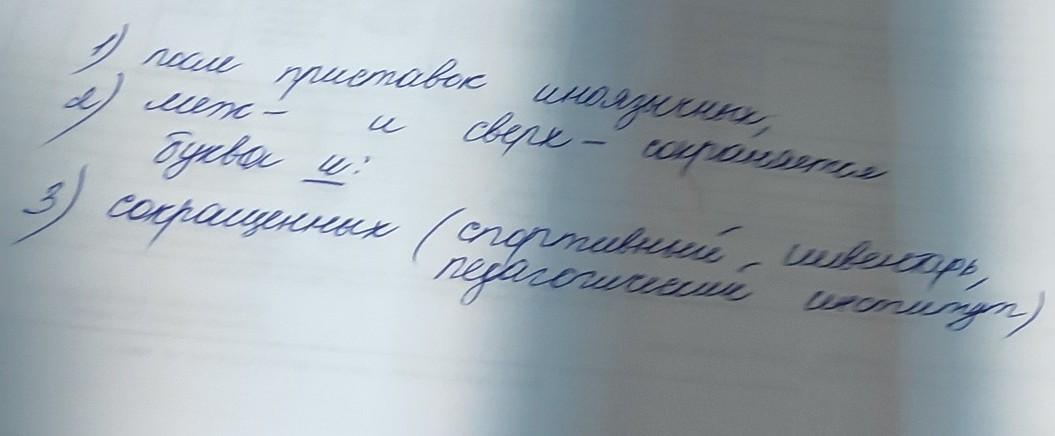 1) после приставок иноязычных,
2) меж- и сверх- сохраняется
буква и:
3) сокращенных (спортивный инвентарь,
педагогический институт)